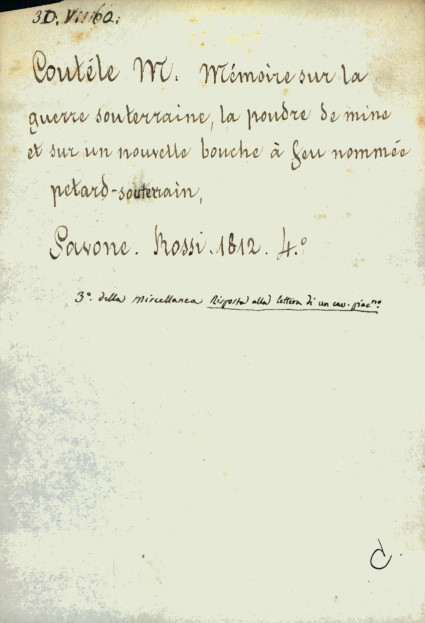 3D. VII. 62.
Coutéle M. Mémoire sur la
guerre souterraine, la poudre de mine
et sur un nouvelle bouche à feu nommée
petard-souterrain,
Savone. Rossi. 1812. 4.º
3º. della Miscellanea Risposta alla lettera di un cav. piac.no
C